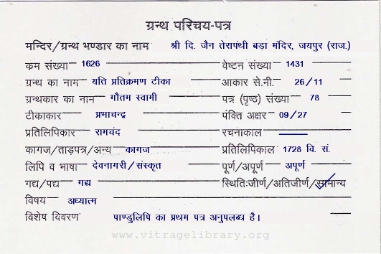 ग्रन्थ परिचय-पत्र
मन्दिर/ग्रन्थ भण्डार का नाम श्री दि. जैन तेरापंथी बड़ा मंदिर, जयपुर (राज.)
क्रम संख्या 1626 वेष्टन संख्या 1431
ग्रन्थ का नाम यति प्रतिक्रमण टीका आकार से.मी. 26/11
ग्रन्थकार का नाम गौतम स्वामी पत्र (पृष्ठ) संख्या 78
टीकाकार प्रभाचन्द्र पंक्ति अक्षर 09/27
प्रतिलिपिकार रामचंद रचनाकाल
कागज/ताड़पत्र/अन्य कागज प्रतिलिपिकाल 1728 वि. सं.
लिपि व भाषा देवनागरी/संस्कृत पूर्ण/अपूर्ण अपूर्ण
गद्य/पद्य गद्य स्थिति:जीर्ण/अतिजीर्ण/सामान्य
विषय अध्यात्म
विशेष विवरण पाण्डुलिपि का प्रथम पत्र अनुपलब्ध है।
www.vitragelibrary.org